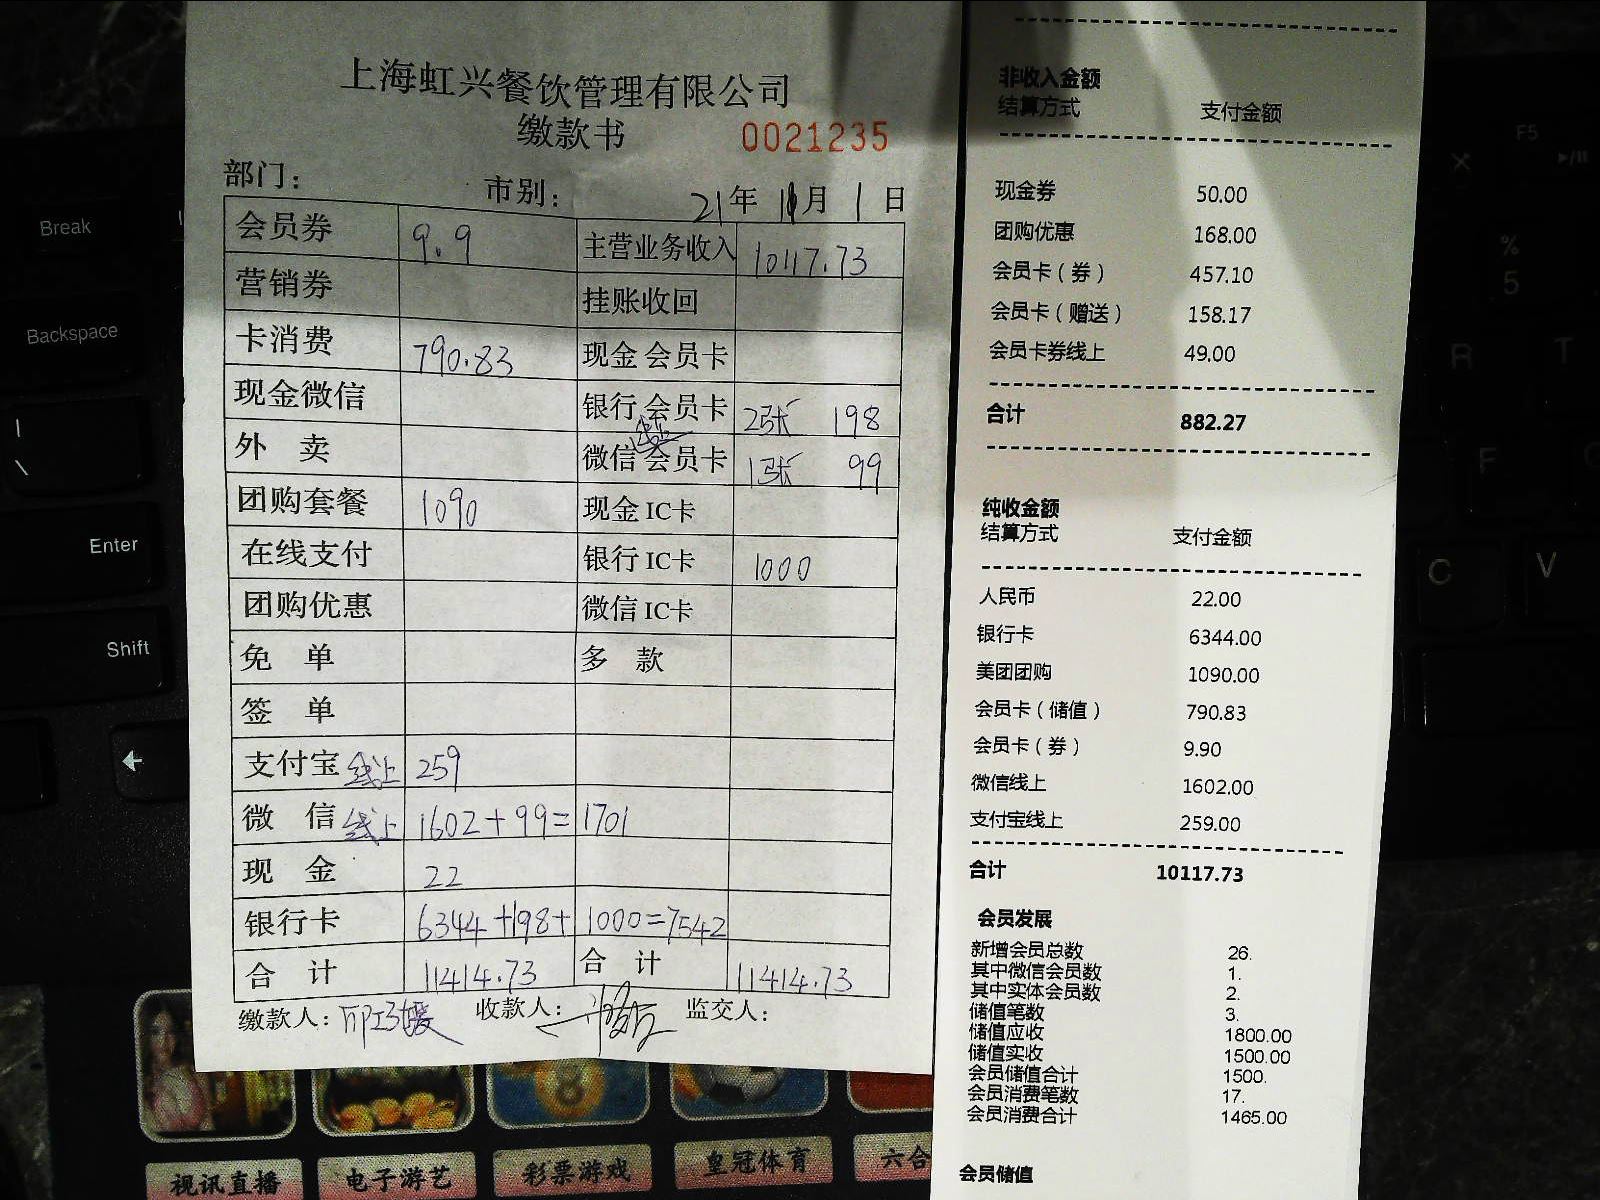 上海虹兴餐饮管理有限公司
缴款书 0021235
部门： 市别： 21年 11月 1日
会员券 9.9 主营业务收入 10117.73
营销券 挂账收回
卡消费 790.83 现金会员卡
现金微信 银行会员卡 2张 198
外 卖 微信会员卡 1张 99
团购套餐 1090 现金IC卡
在线支付 银行IC卡 1000
团购优惠 微信IC卡
免 单 多 款
签 单
支付宝 线上 259
微 信 线上 1602+99=1701
现 金 22
银行卡 6344+198+1000=7542
合 计 11414.73 合 计 11414.73
缴款人： 收款人： 监交人：
非收入金额
结算方式 支付金额
现金券 50.00
团购优惠 168.00
会员卡（券） 457.10
会员卡（赠送） 158.17
会员卡券线上 49.00
合计 882.27
纯收金额
结算方式 支付金额
人民币 22.00
银行卡 6344.00
美团团购 1090.00
会员卡（储值） 790.83
会员卡（券） 9.90
微信线上 1602.00
支付宝线上 259.00
合计 10117.73
会员发展
新增会员总数 26.
其中微信会员数 1.
其中实体会员数 2.
储值笔数 3.
储值应收 1800.00
储值实收 1500.00
会员储值合计 1500.
会员消费笔数 17.
会员消费合计 1465.00
会员储值
Break
Backspace
|
\
Enter
Shift
F5
%
5
R T
F
C V
视讯直播 电子游艺 彩票游戏 皇冠体育 六合